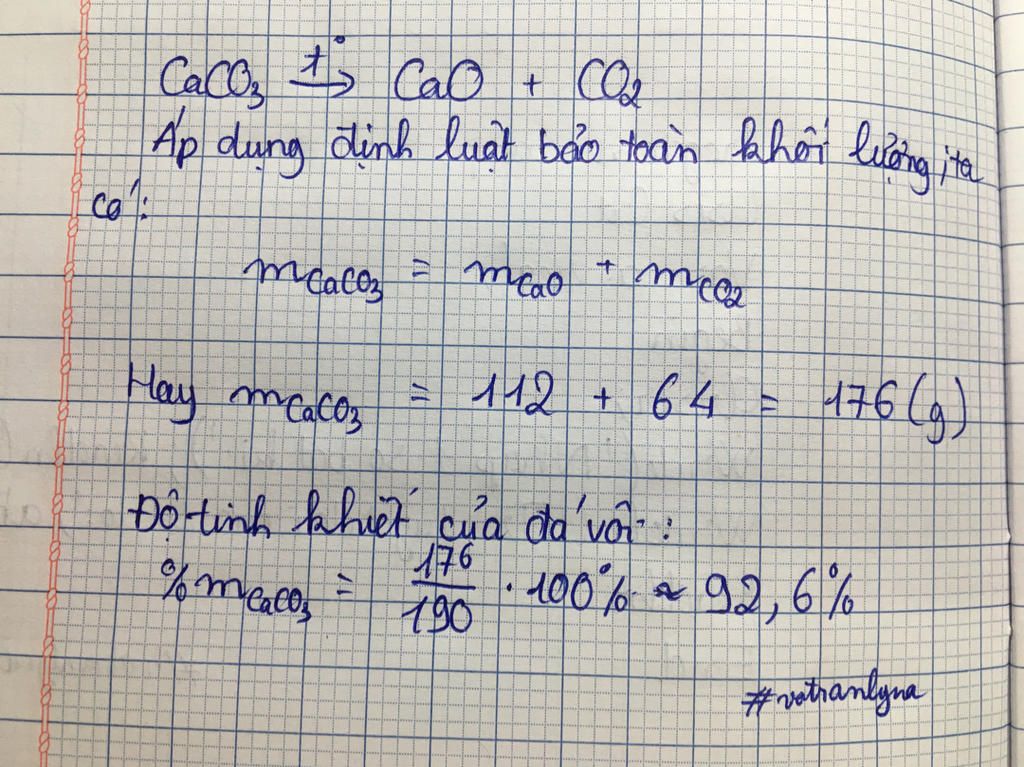 CaCO₃ —t°→ CaO + CO₂
Áp dụng định luật bảo toàn khối lượng, ta
có:
mCaCO₃ = mCaO + mCO₂
Hay mCaCO₃ = 112 + 64 = 176 (g)
Độ tinh khiết của đá vôi:
%mCaCO₃ = 176/190 . 100% ≈ 92,6%
#votranlyna